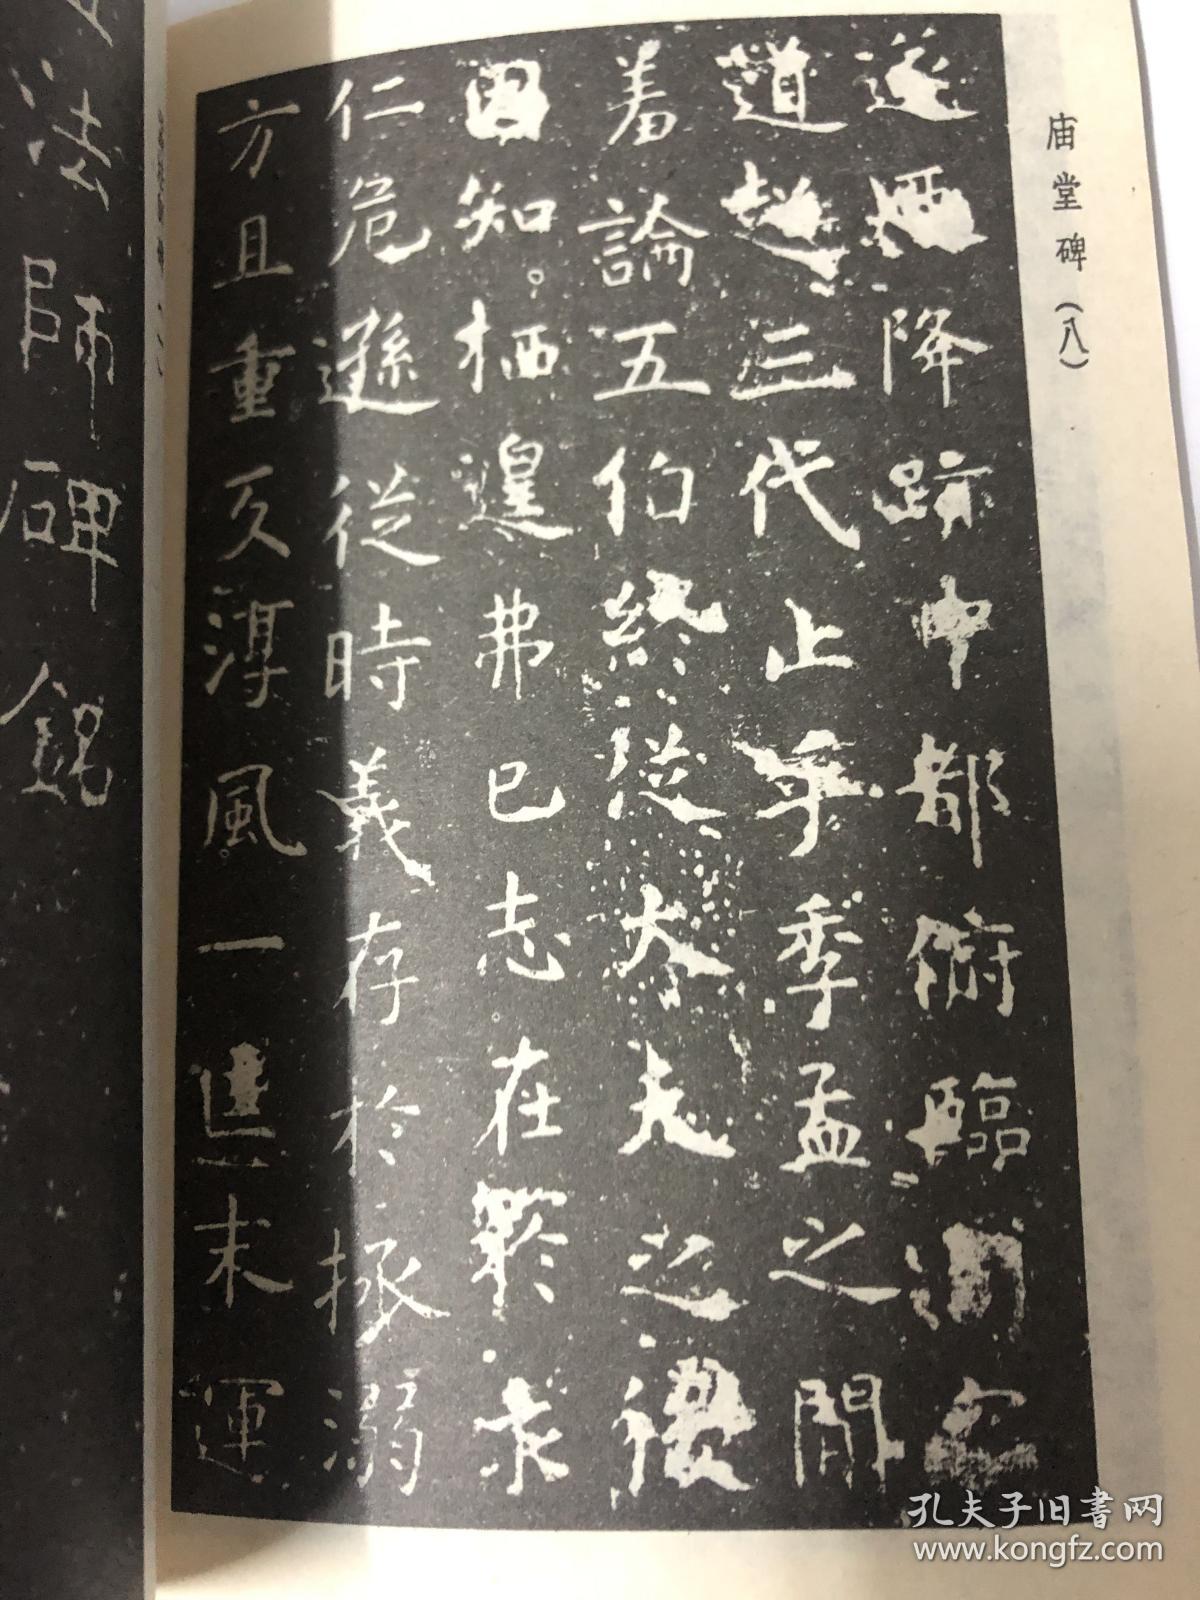 庙堂碑（八）
遂迺降跡中都俯臨司寇
道超三代止乎季孟之間
羞論五伯終從大夫之後
固知栖遑弗已志在於求
仁危遜從時義存於拯溺
方且重反淳風一匡末運
法師碑銘
孔夫子旧书网
www.kongfz.com